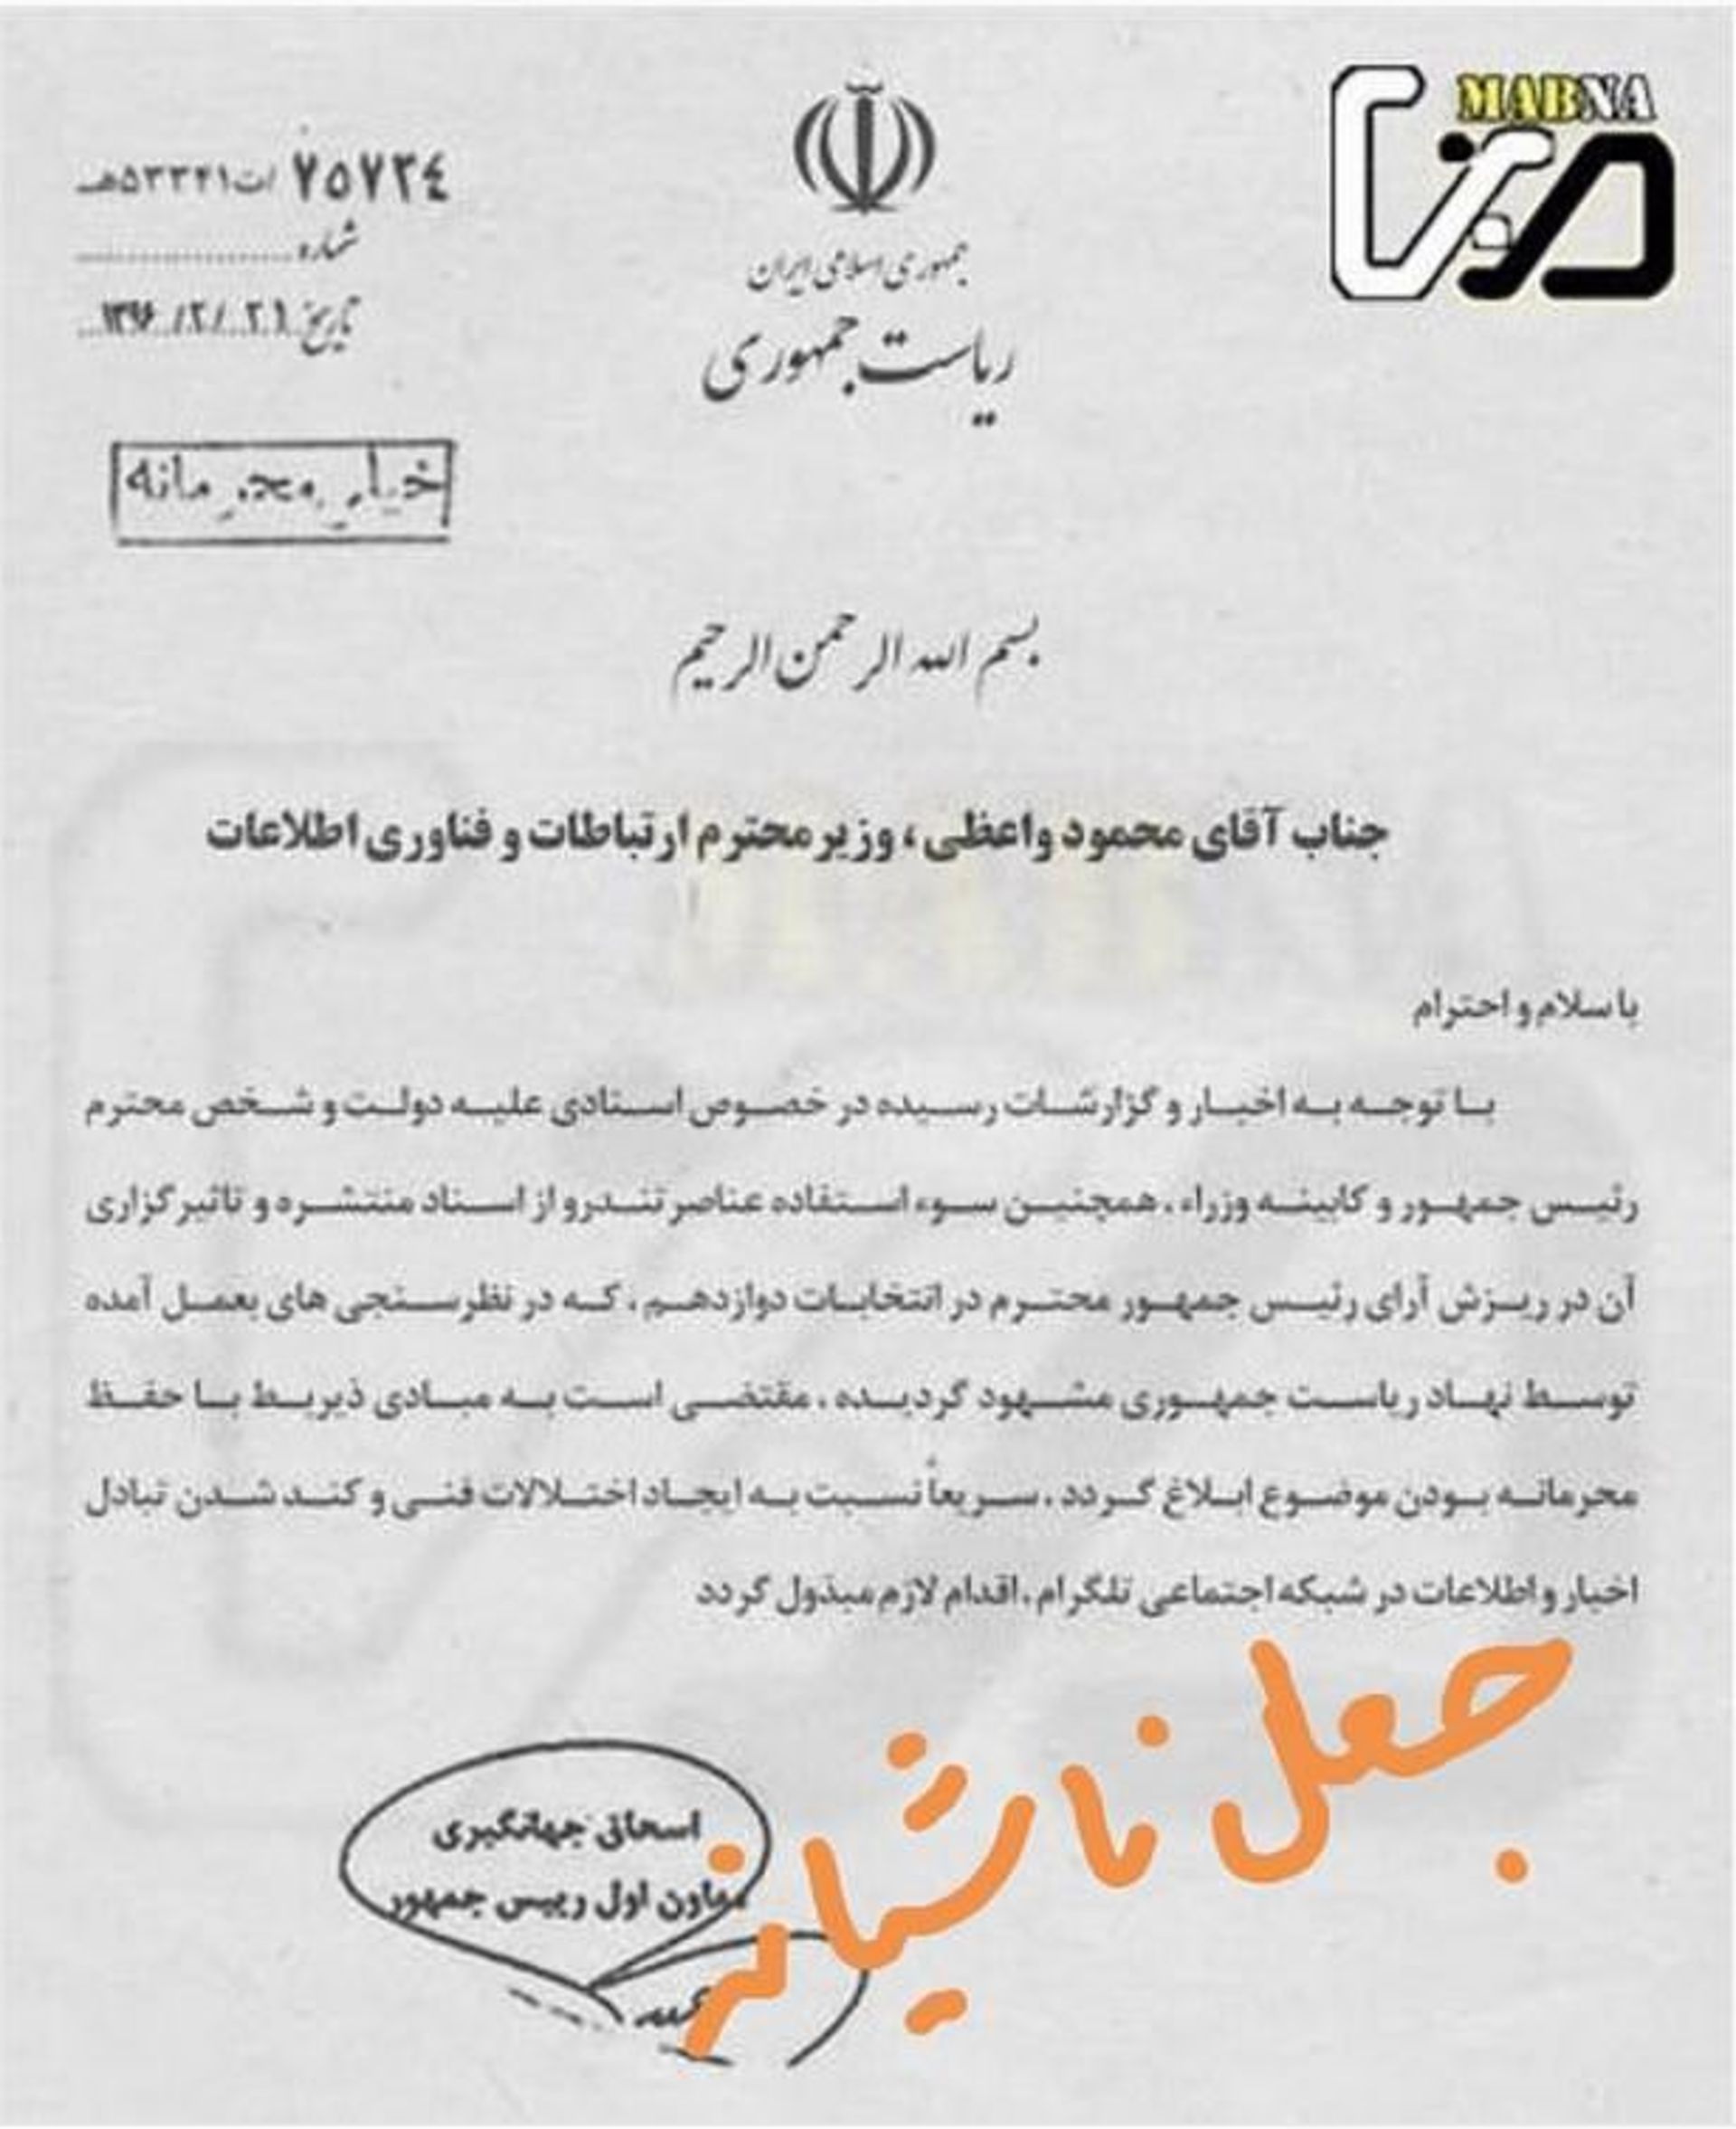 MABNA
مبنا
۷۵۷۳٤ /ت۵۳۳۴۱هـ
شماره
تاریخ ۱۳۹۶/۲/۲۱
جمهوری اسلامی ایران
ریاست جمهوری
خیلی محرمانه
بسم الله الرحمن الرحیم
جناب آقای محمود واعظی ، وزیر محترم ارتباطات و فناوری اطلاعات
با سلام و احترام
با توجه به اخبار و گزارشات رسیده در خصوص اسنادی علیه دولت و شخص محترم
رئیس جمهور و کابینه وزراء ، همچنین سوء استفاده عناصر تندرو از اسناد منتشره و تاثیر گزاری
آن در ریزش آرای رئیس جمهور محترم در انتخابات دوازدهم ، که در نظرسنجی های بعمل آمده
توسط نهاد ریاست جمهوری مشهود گردیده ، مقتضی است به مبادی ذیربط با حفظ
محرمانه بودن موضوع ابلاغ گردد ، سریعاً نسبت به ایجاد اختلالات فنی و کند شدن تبادل
اخبار و اطلاعات در شبکه اجتماعی تلگرام ، اقدام لازم مبذول گردد
جعل ناشیانه
اسحاق جهانگیری
معاون اول رییس جمهور